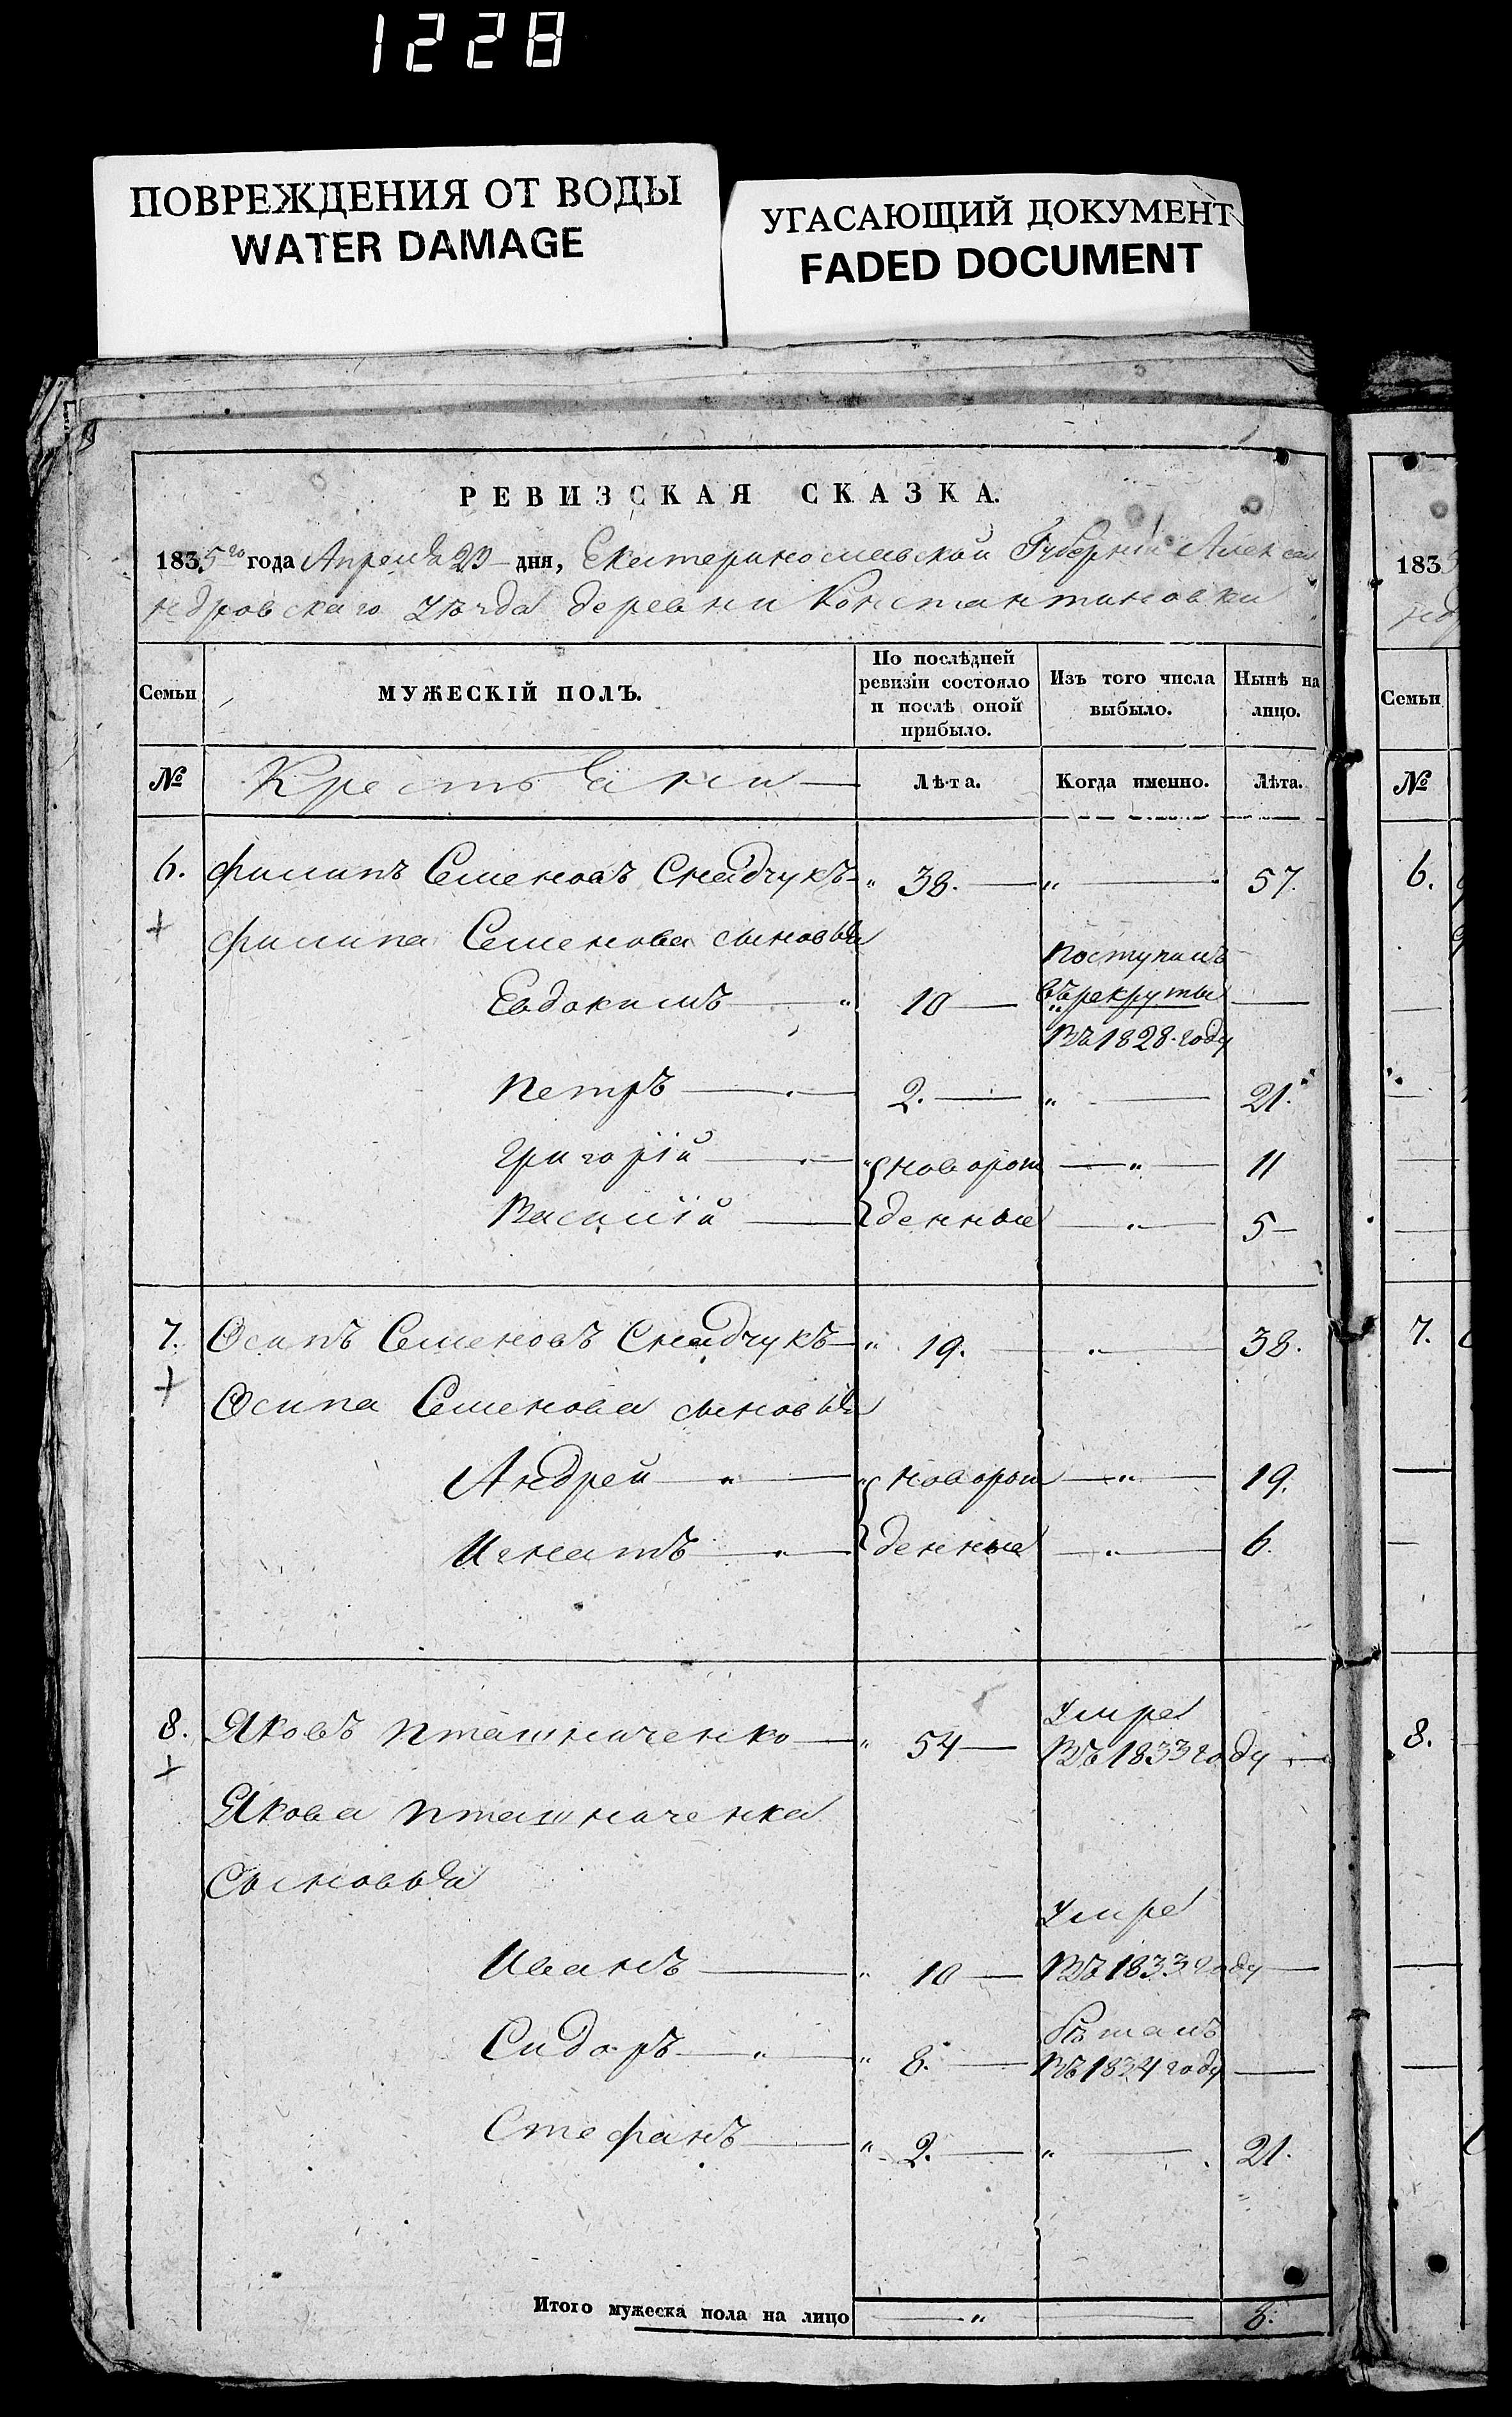 1228
ПОВРЕЖДЕНИЯ ОТ ВОДЫ
WATER DAMAGE
УГАСАЮЩИЙ ДОКУМЕНТ
FADED DOCUMENT
РЕВИЗСКАЯ СКАЗКА.
1835го года Апреля дня, Екатеринославской Губернии Алекса
ндровскаго уѣзда деревни Константиновки
Семьи
МУЖЕСКІЙ ПОЛЪ.
По послѣдней ревизіи состояло и послѣ оной прибыло.
Изъ того числа выбыло.
Нынѣ на лицо.
№ Крестьяни Лѣта. Когда именно. Лѣта.
6. Филипъ Семеновъ Снадчукъ " 38. " 57.
+ Филипа Семенова сыновья
Поступилъ
Евдокимъ " 10 въ рекруты
въ 1828 году
Петръ 2. " 21.
Григорій " новорож " 11
Василій денные " 5
7. Осипъ Семеновъ Снадчукъ " 19. " 38.
+ Осипа Семенова сыновья
Андрей " новорож " 19.
Игнатъ денные " 6.
8. Яковъ Пташниченко " 54 умре
+ въ 1833 году
Якова Пташниченка
Сыновья
умре
Иванъ " 10 въ 1833 году
Сидоръ " 8.
въ 1834 году
Стефанъ " 2. " 21.
Итого мужеска пола на лицо " 8.
183
Семьи
№
6.
7.
8.